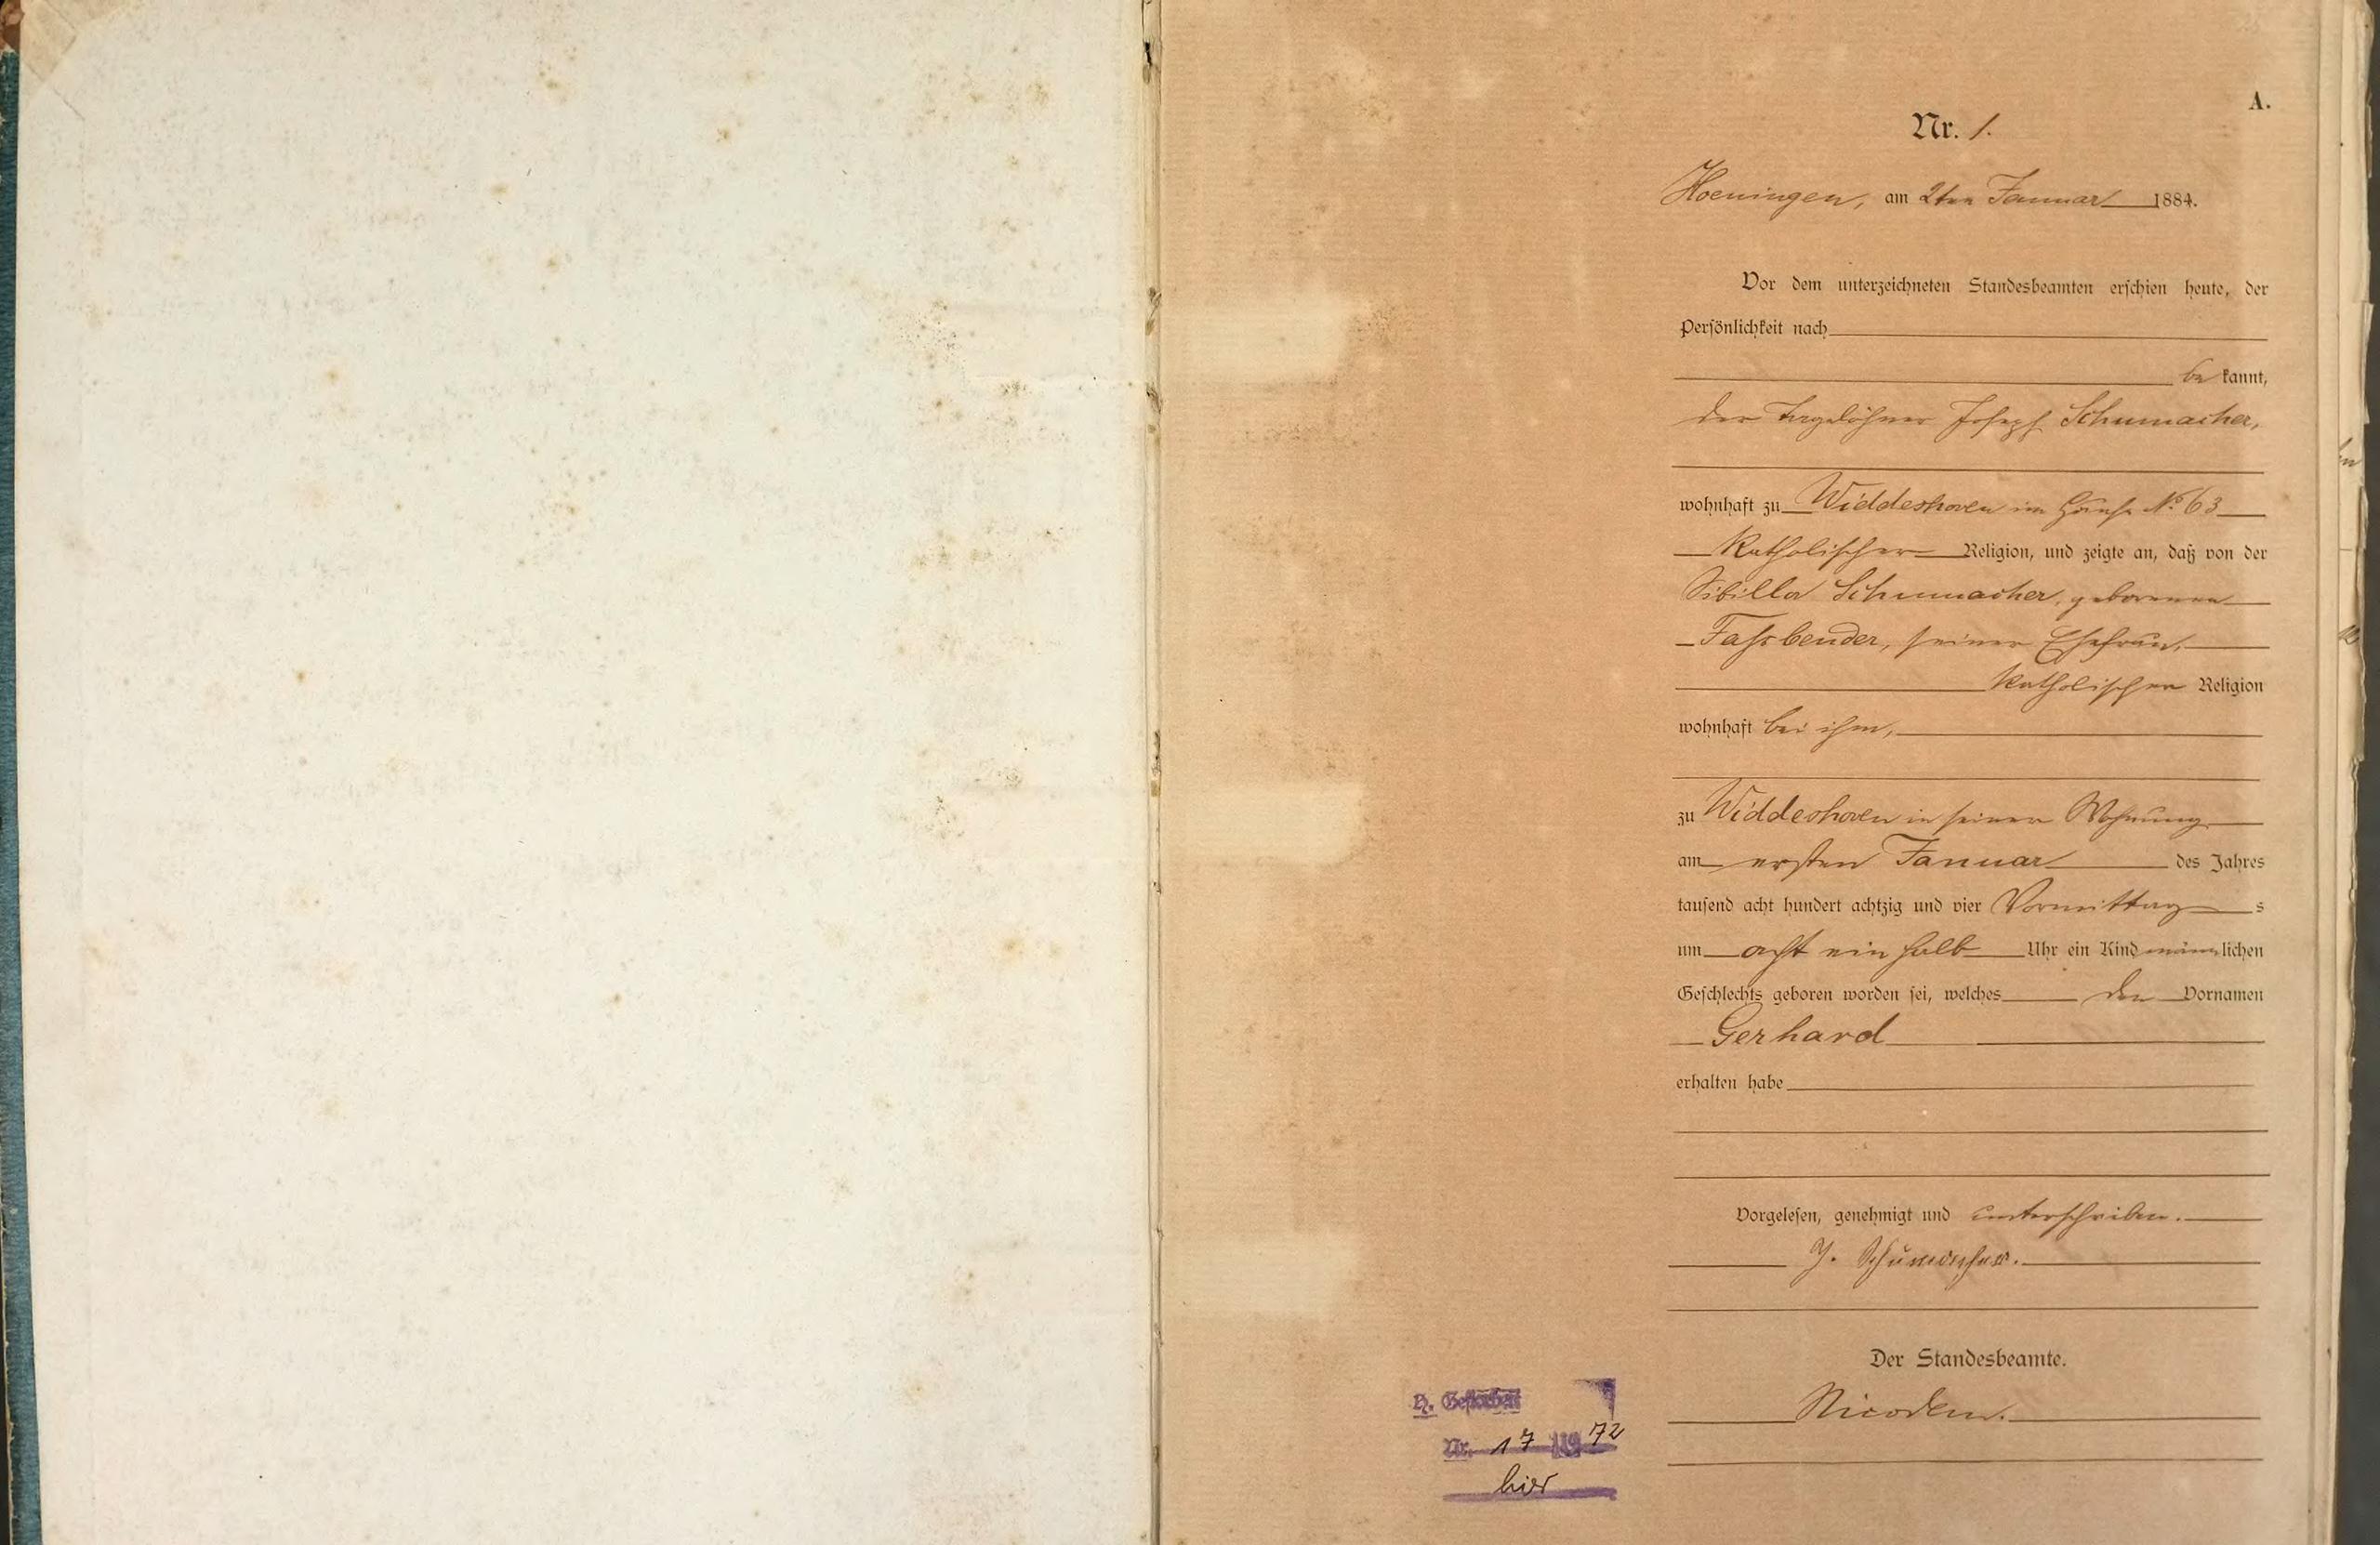 A.
Nr. 1.
Hoeningen, am 2ten Januar 1884.
Vor dem unterzeichneten Standesbeamten erschien heute, der
Persönlichkeit nach
be kannt,
der Tagelöhner Joseph Schumacher,
wohnhaft zu Widdeshoven im Hause No 63
katholischer Religion, und zeigte an, daß von der
Sibilla Schumacher, geborenen
Fassbender, seiner Ehefrau,
katholischer Religion
wohnhaft bei ihm,
zu Widdeshoven in seiner Wohnung
am ersten Januar des Jahres
tausend acht hundert achtzig und vier Vormittag s
um acht ein halb Uhr ein Kind männlichen
Geschlechts geboren worden sei, welches den Vornamen
Gerhard
erhalten habe
Vorgelesen, genehmigt und unterschrieben.
J. Schumacher.
Der Standesbeamte.
Nicodem.
H. Gestorben
Nr. 17 1972
hier